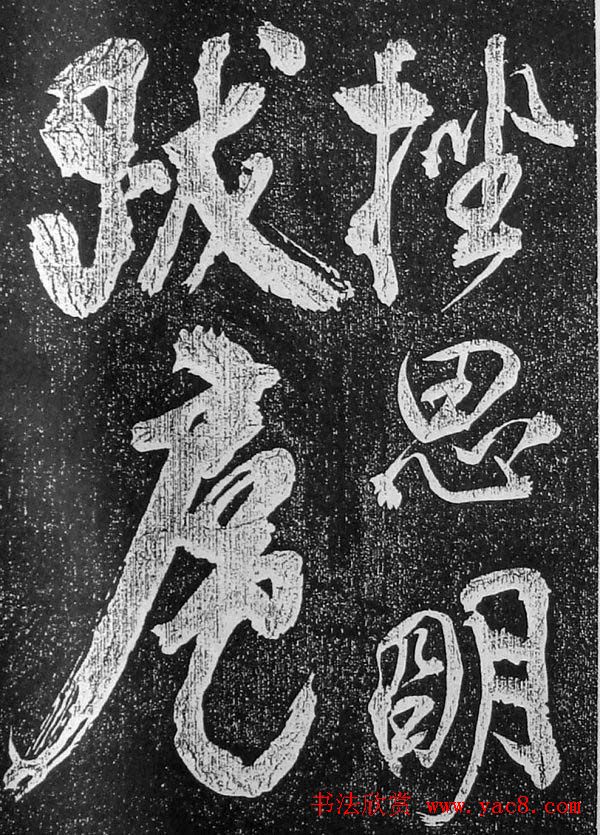 挫思明
跋扈
书法欣赏 www.yac8.com